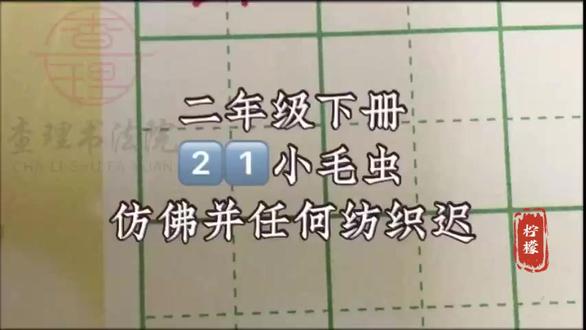 查理
查理书法院
CHA LI SHU FA YUAN
二年级下册
21小毛虫
仿佛并任何纺织迟
柠檬